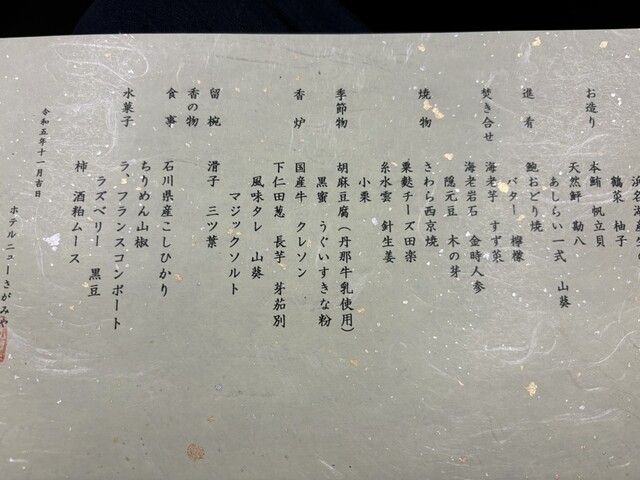 鶴菜 柚子
お造り
本鮪 帆立貝
天然鮮 勘八
あしらい一式 山葵
進肴
鮑おどり焼
バター 檸檬
焚き合せ
海老芋 すずし菜
海老岩石 金時人参
隠元豆 木の芽
焼物
さわら西京焼
粟麩チーズ田楽
糸水雲 針生姜
小栗
季節物
胡麻豆腐(丹那牛乳使用)
黒蜜 うぐいすきな粉
香炉
国産牛 クレソン
下仁田葱 長芋 芽茄別
風味タレ 山葵
マジックソルト
留椀
滑子 三ツ葉
香の物
食事
石川県産こしひかり
ちりめん山椒
水菓子
ラ、フランスコンポート
ラズベリー 黒豆
柿 酒粕ムース
令和五年十一月吉日
ホテルニューさがみや